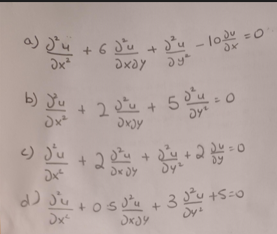 a) ∂²u/∂x² + 6 ∂²u/∂x∂y + ∂²u/∂y² - 10 ∂u/∂x = 0
b) ∂²u/∂x² + 2 ∂²u/∂x∂y + 5 ∂²u/∂y² = 0
c) ∂²u/∂x² + 2 ∂²u/∂x∂y + ∂²u/∂y² + 2 ∂u/∂y = 0
d) ∂²u/∂x² + 0.5 ∂²u/∂x∂y + 3 ∂²u/∂y² + 5 = 0